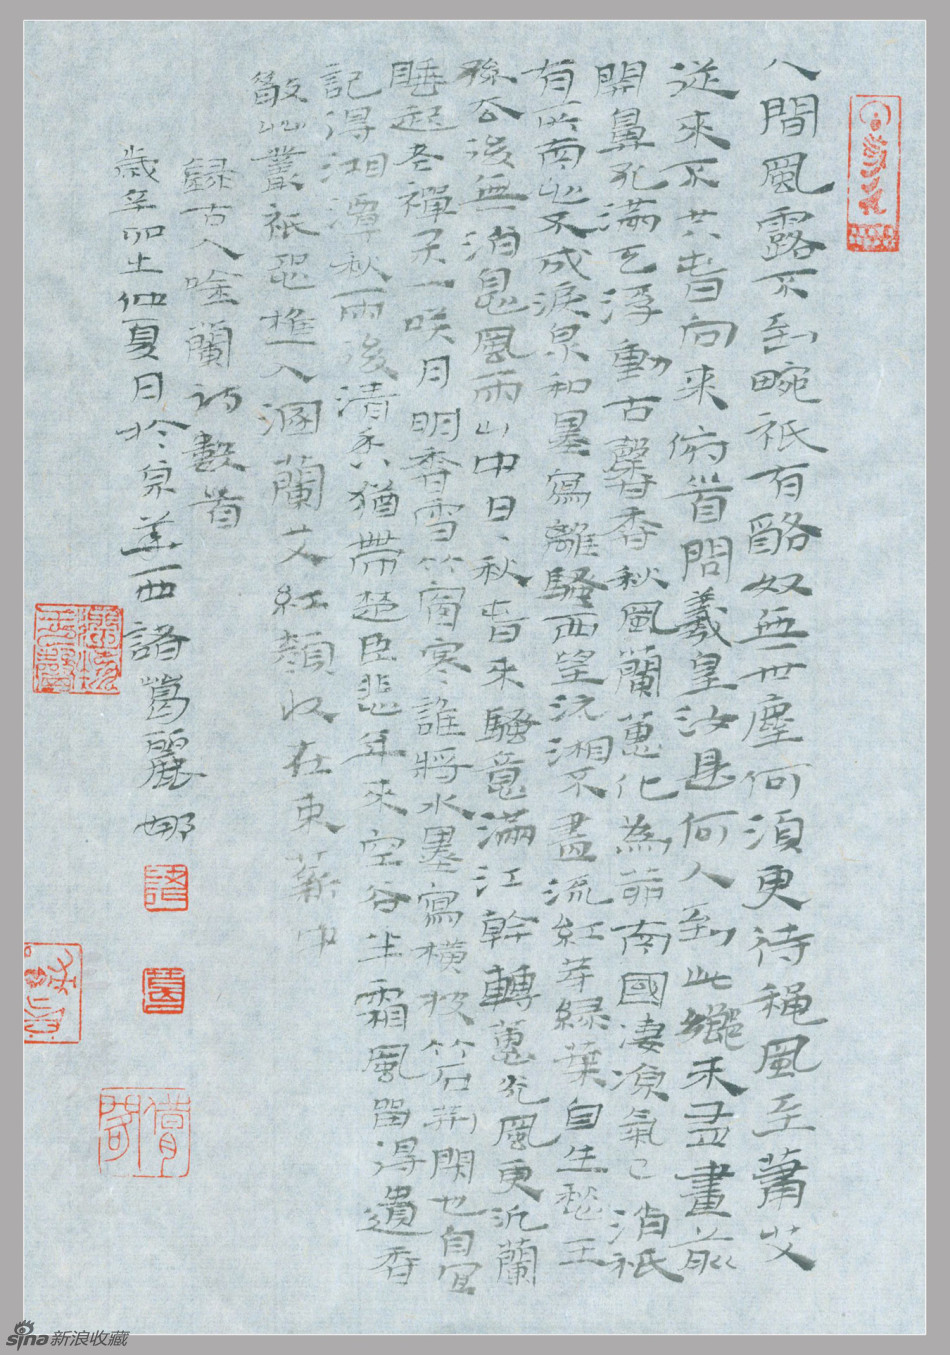 人間風露不到畹祇有酪奴無世塵何須更待穐風至蕭艾
從來不共春向來俯首問羲皇汝是何人到此鄉未盡畫前
開鼻孔滿天浮動古馨香秋風蘭蕙化為茆南國凄涼氣已消祇
有所南心不成淚泉和墨寫離騷西望沅湘不盡流紅芽綠葉自生愁王
孫公後無消息風雨山中日、秋春來騷意滿江幹轉蕙光風更汎蘭
睡起老禪子一咲月明香雪竹窗寒誰將水墨寫橫披竹石荊閑也自宜
記得湘潭秋雨後清香猶帶楚臣悲年來空谷半霜風留得遺香
散此叢祇恐樵人溷蘭艾紅顏收在束薪中
錄古人咏蘭詩數首
歲辛卯之仲夏月於京華西諸葛麗娜
諸
葛
sina新浪收藏